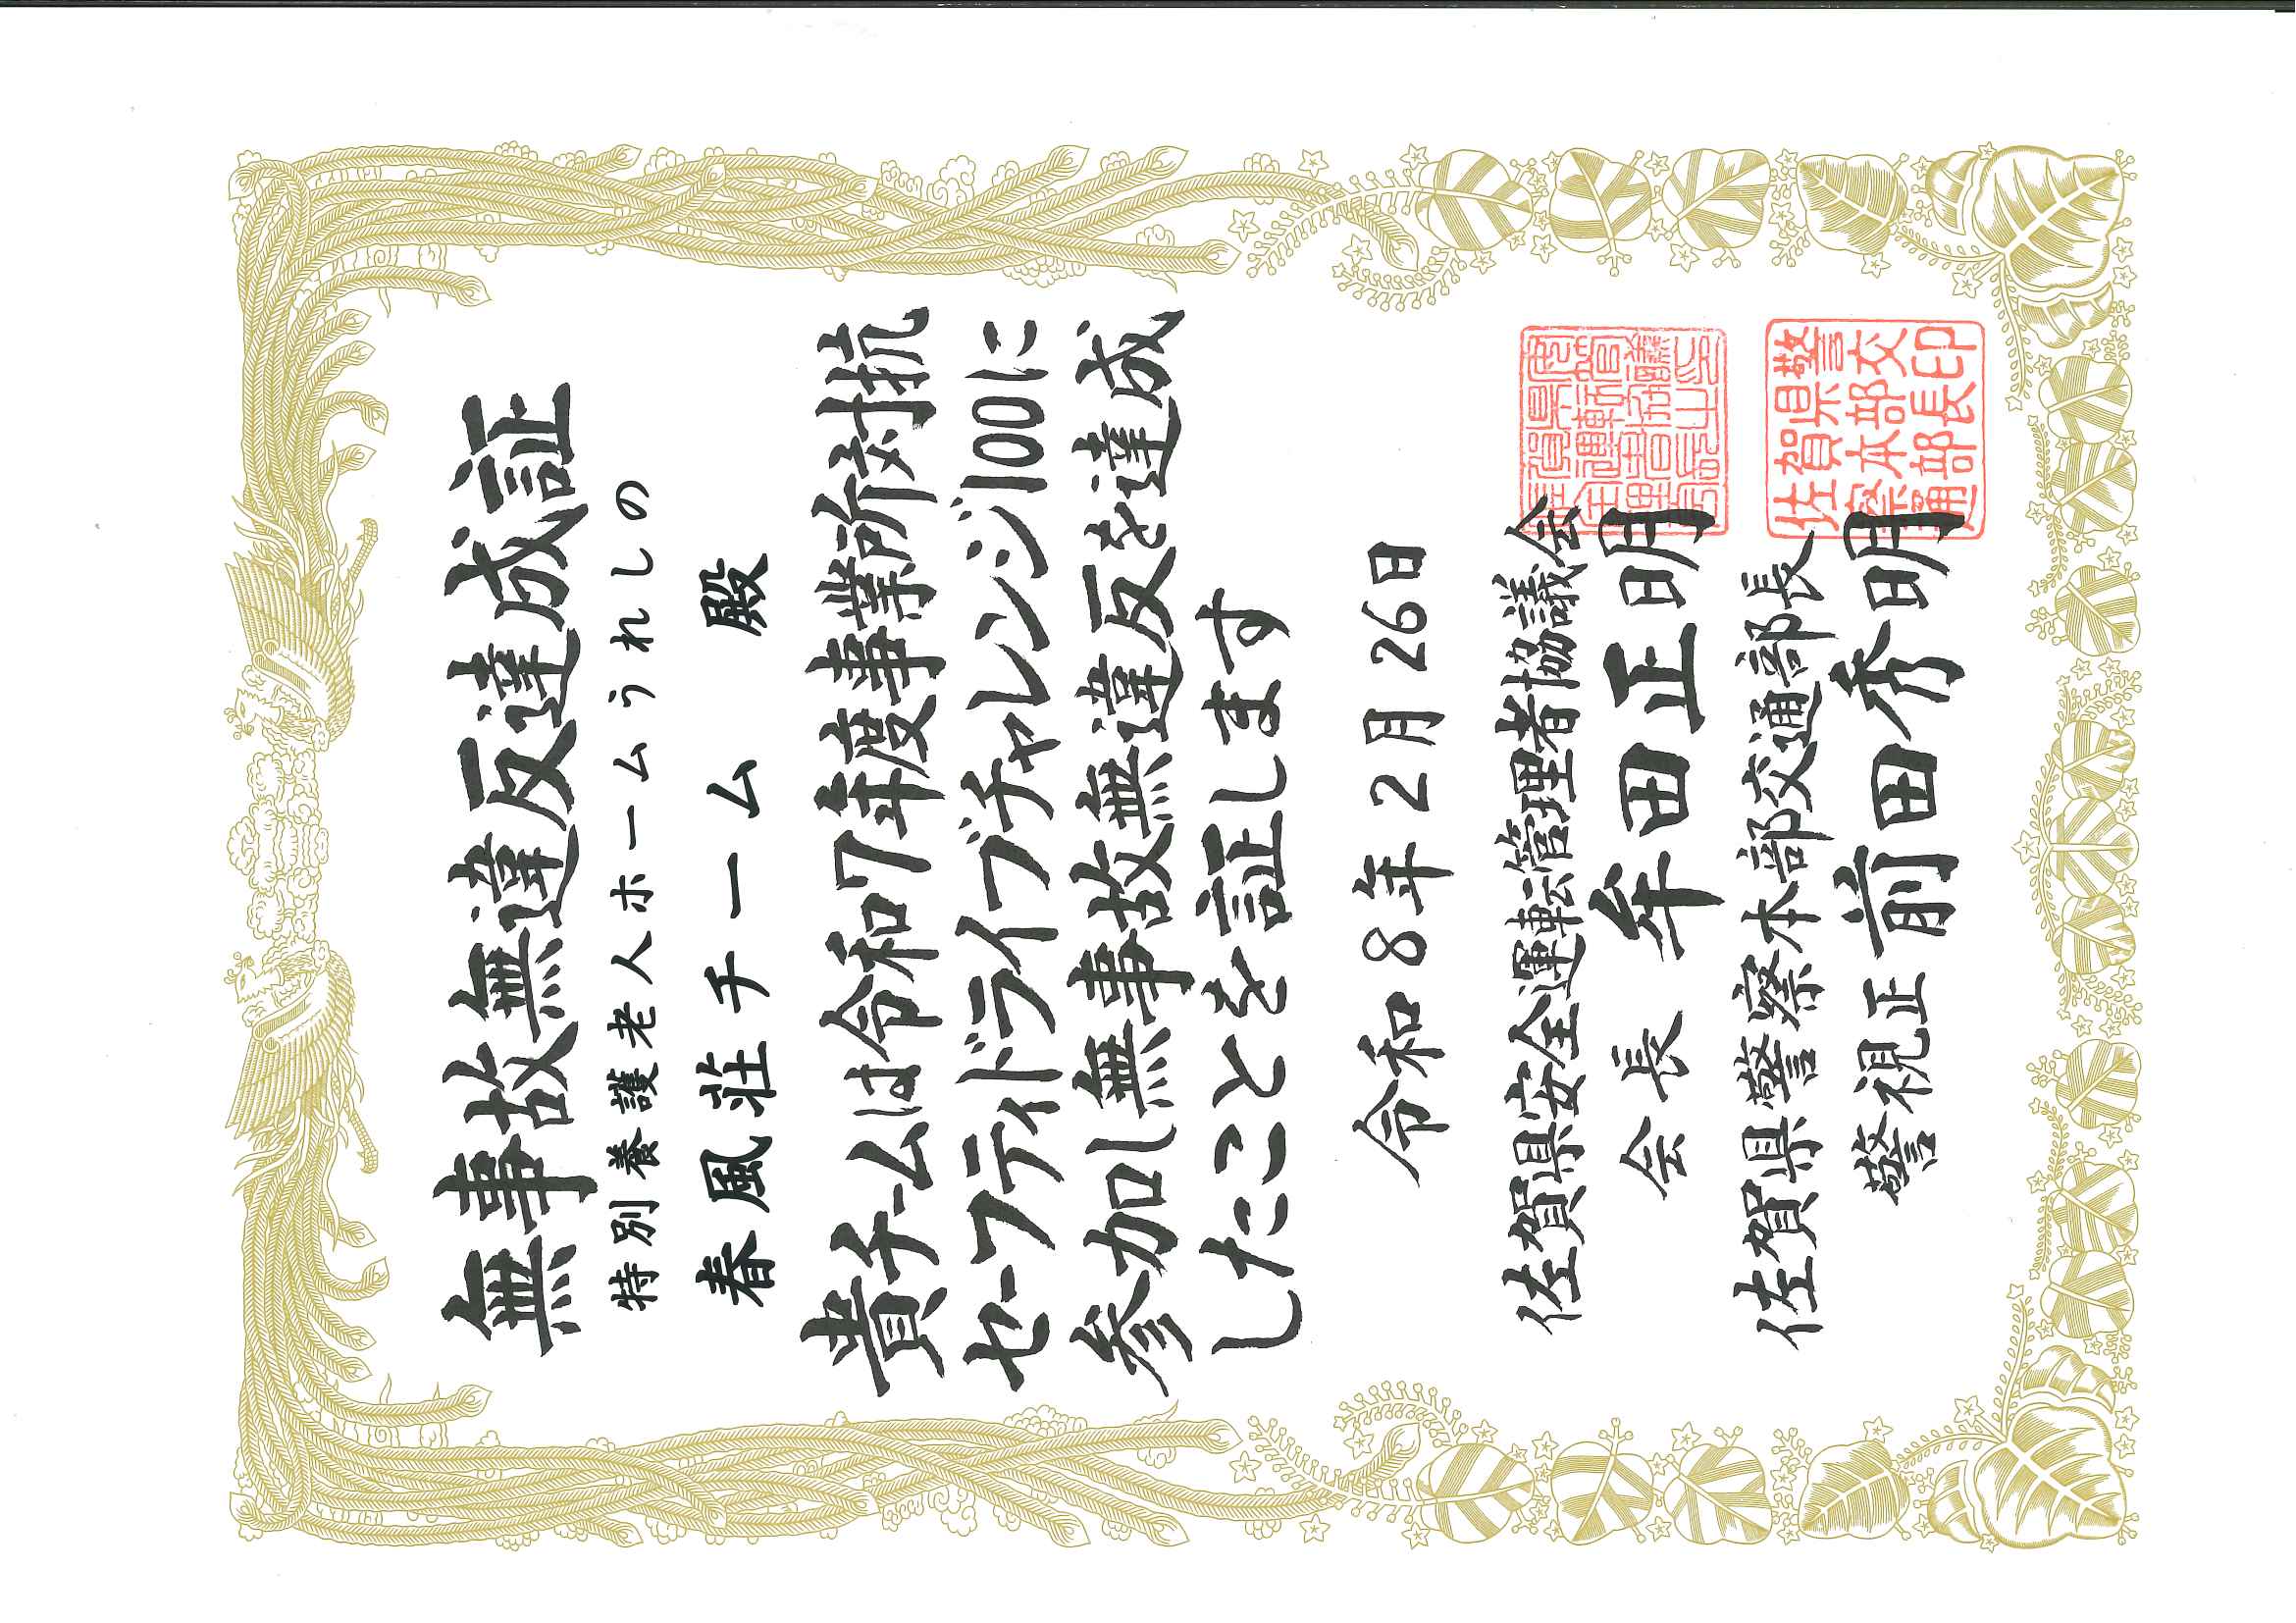 無事故無違反達成証
特別養護老人ホームうれしの
春風荘チーム 殿
貴チームは令和7年度事業所対抗
セーフティドライブチャレンジ100に
参加し無事故無違反を達成
したことを証します
令和8年2月26日
佐賀県安全運転管理者協議会
会長 牟田正明
佐賀県警察本部交通部長
警視正 前田秀明
佐賀県警
察本部交
通部長印